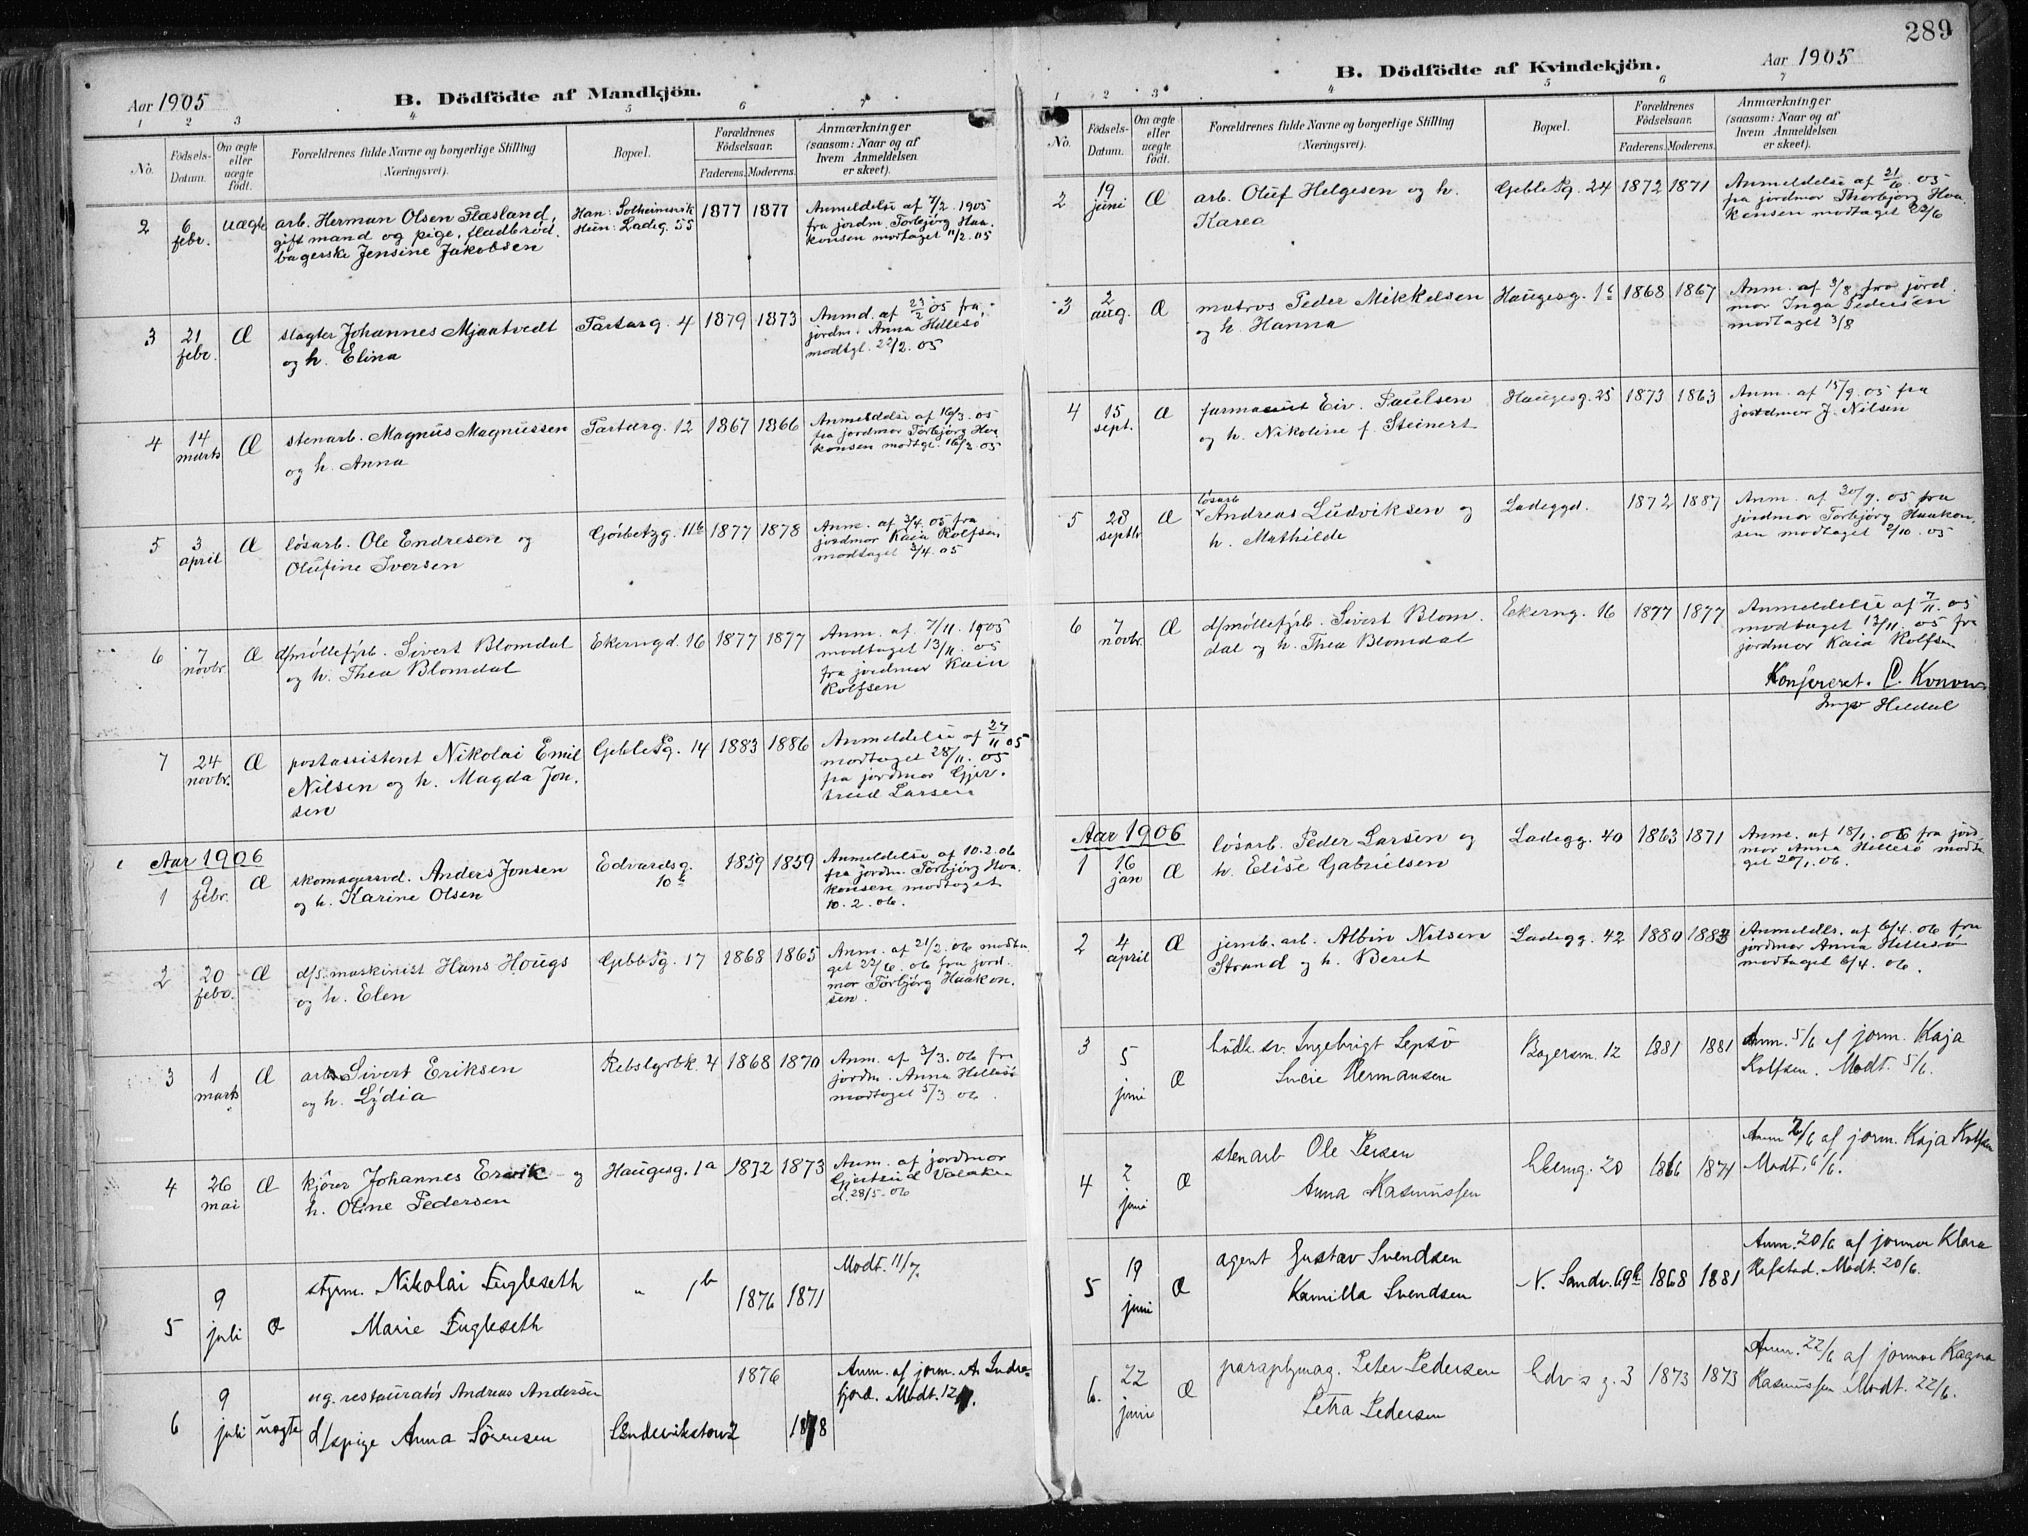 289
Aar 1905
B. Dödfödte af Mandkjön.
1 2 3 4 5 6 7
No.
Födsels-Datum.
Om ægte eller uægte födt.
Forældrenes fulde Navne og borgerlige Stilling (Næringsvei).
Bopæl.
Forældrenes Födselsaar.
Faderens. Moderens.
Anmærkninger (saasom: Naar og af hvem Anmeldelsen er skeet).
2 6 febr. uægte arb. Herman Olsen Flæsland, Han: Solheimsvik 1877 1877 Anmeldelse af 7/2. 1905
gift mand og pige, fladbröd- Hun: Ladeg. 55 fra jordm. Torbjørg Haa-
bagerske Jensine Jakobsen konsen modtaget 11/2. 05
3 21 febr. Æ slagter Johannes Mjaatvedt Tartarg. 4 1879 1873 Anmd. af 23/2 05 fra
og h. Elina jordm. Anna Hillesö
modtgt. 23/2. 05
4 14 marts Æ stenarb. Magnus Magnussen Tartarg. 12 1867 1866 Anmeldelse af 16/3. 05
og h. Anna fra jordmor Torbjörg Haa-
konsen modtgt. 16/3. 05
5 3 april Æ løsarb. Ole Endresen og Görbetzg. 11b 1877 1878 Anm. af 3/4. 05 fra
Olufine Iversen jordmor Kaia Rolfsen
modtaget 3/4. 05
6 7 novbr. Æ d/möllefýrb. Sivert Blomdal Ekerngd. 16 1877 1877 Anm. af 7/11. 1905
og h. Thea Blomdal modtaget 13/11. 05
fra jordmor Kaia
Rolfsen
7 24 novbr. Æ postassistent Nikolai Emil Geble Pg. 14 1883 1886 Anmeldelse af 27/11 05
Nilsen og h. Magda Jon- modtaget 28/11. 05
sen fra jordmor Gjer-
trud Larsen
Aar 1906
1 9 febr. Æ skomagersvd. Anders Jonsen Edvardsg. 10b 1859 1859 Anmeldelse af 10.2.06
og h. Karine Olsen fra jordm. Torbjörg Haa-
konsen modtaget
10.2.06.
2 20 febr. Æ d/s. maskinist Hans Hougs Geble Pg. 17 1868 1865 Anm. af 21/2. 06 modta-
og h. Elen get 22/6. 06 fra jord-
mor Torbjörg Haakon-
sen.
3 1 marts Æ arb. Sivert Eriksen Rebslgrbk. 4 1868 1870 Anm. af 3/3. 06 fra
og h. Lýdia jordm. Anna Hillesö
modtaget 5/3. 06.
4 26 mai Æ kjörer Johannes Ervik og Haugesg. 1a 1872 1873 Anm. af jordmor
h. Oline Pedersen Gjertrud Valaker
d. 28/5-06
5 9 juli Æ styrm. Nikolai Fugleseth " 1b 1876 1871 Modt. 11/7.
Marie Fugleseth
6 9 juli uægte ug. restauratör Andreas Andersen 1876 Anm. af jorm. A. Indre-
d/spige Anna Sörensen 1878 fjord. Modt. 12/7.
Aar 1905
B. Dödfödte af Kvindekjön.
1 2 3 4 5 6 7
No.
Födsels-Datum.
Om ægte eller uægte födt.
Forældrenes fulde Navne og borgerlige Stilling (Næringsvei).
Bopæl.
Forældrenes Födselsaar.
Faderens. Moderens.
Anmærkninger (saasom: Naar og af hvem Anmeldelsen er skeet).
2 19 juni Æ arb. Oluf Helgesen og h. Geble Pg. 24 1872 1871 Anmeldelse af 21/6. 05
Karea fra jordmor Thorbjörg Haa-
konsen modtaget 22/6
3 2 aug. Æ matros Peder Mikkelsen Haugesg. 1c 1868 1867 Anm. af 3/8 fra jord-
og h. Hanna mor Inga Pedersen
modtaget 3/8
4 15 sept. Æ farmaceut Eiv. Paulsen Haugesg. 25 1873 1863 Anm. af 15/9. 05 fra
og h. Nikoline f. Steinert jordmor J. Nilsen
5 28 septbr. Æ løsarb Andreas Ludviksen og Ladeggd. 1872 1887 Anm. af 30/9. 05 fra
h. Mathilde jordmor Torbjörg Haakon-
sen modtaget 2/10. 05
6 7 novbr. Æ d/möllefýrb. Sivert Blom- Eekerng. 16 1877 1877 Anmeldelse af 7/11. 05
dal og h. Thea Blomdal modtaget 13/11. 05 fra
jordmor Kaia Rolfsen
Konfereret. C. Konow
Heldal
Aar 1906
1 16 jan Æ løsarb. Peder Larsen og Ladegg. 40 1863 1871 Anm. af 18/1. 06 fra jord-
h. Elise Gabrielsen mor Anna Hillesö modta-
get 20/1. 06.
2 4 april Æ jernb. arb. Albin Nilsen Ladegg. 42 1880 1883 Anmeldls. af 6/4. 06 fra
Strand og h. Beret jordmor Anna Hillesö
modtaget 6/4. 06.
3 5 juni Æ Ingebrigt Lepsö Bagersm. 12 1881 1881 Anm. 5/6 af jorm. Kaja
Lucie Hermansen Rolfsen. Modt. 5/6.
4 2 juni Æ stenarb Ole Persen 20 1866 1871 Anm. 2/6 af jorm. Kaja Rolfsen
Anna Rasmussen Modt. 6/6.
5 19 juni Æ agent Gustav Svendsen N. Sandv. 69b 1868 1881 Anm. 20/6 af jormor Klara
Kamilla Svendsen Hafstad. Modt. 20/6.
6. 22 juni Æ paraplymag. Peter Pedersen Edv s g. 3 1873 1873 Anm. 22/6 af jormor Ragna
Petra Pedersen Rasmussen Modt. 22/6.